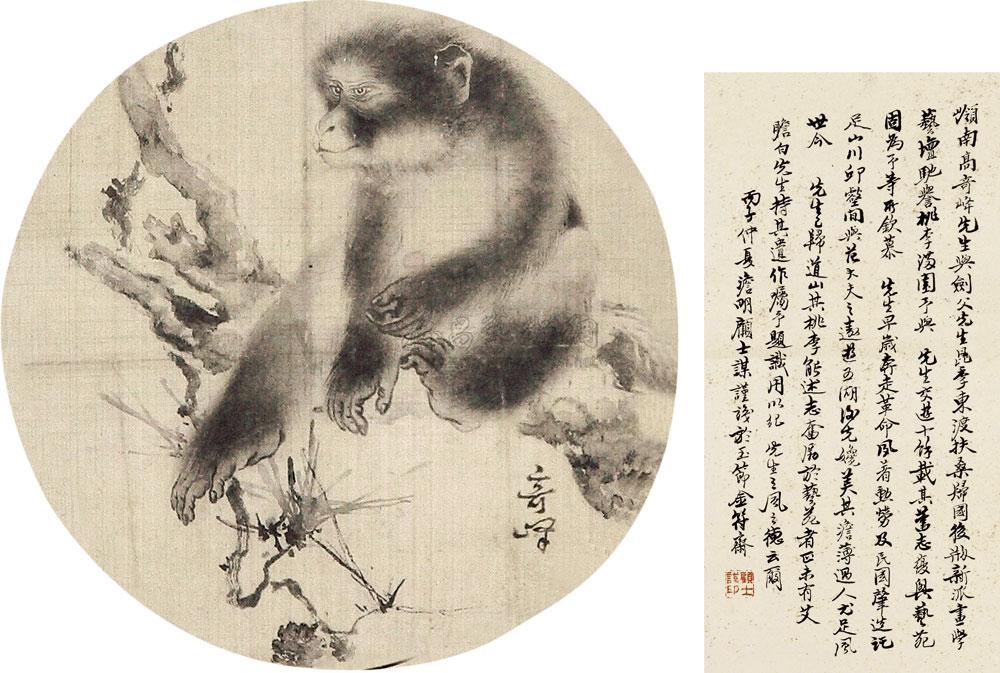 奇峰
嶺南高奇峰先生與劍父先生昆季東渡扶桑歸國後新派畫學
藝壇馳譽桃李滿園予與 先生交遊十餘載其篤志復興藝苑
固為予等所欽慕 先生早歲奔走革命夙著勳勞及民國肇造託
足山川邱壑間與范大夫之遨遊五湖後先媲美其澹薄過人尤足風
世今 先生已歸道山其桃李能述志奮厲於藝苑者正未有艾
瞻白先生持其遺作囑予題識用以紀 先生之風之德云爾
丙子仲夏澹明顧士謀謹識於玉節金符齋